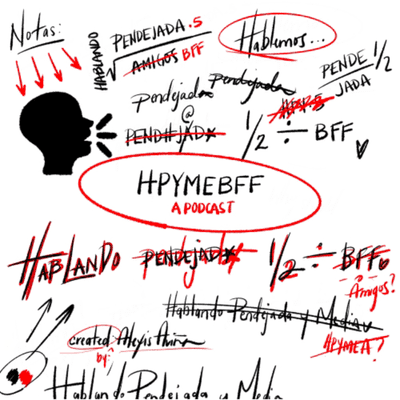 Notas:
HABLANDO
PENDEJADA.5
AMIGOS BFF
Hablemos...
pendejada
pendejada
PENDE 1/2
JADA
@
PENDEJADX
1/2 ÷ BFF
HPYMEBFF
A PODCAST
HABLANDO PENDEJADX 1/2 ÷ BFF
Amigos?
Hablando Pendejada y Media
HPYMEA?
created by: Alexis
Hablando Pendejada y Media